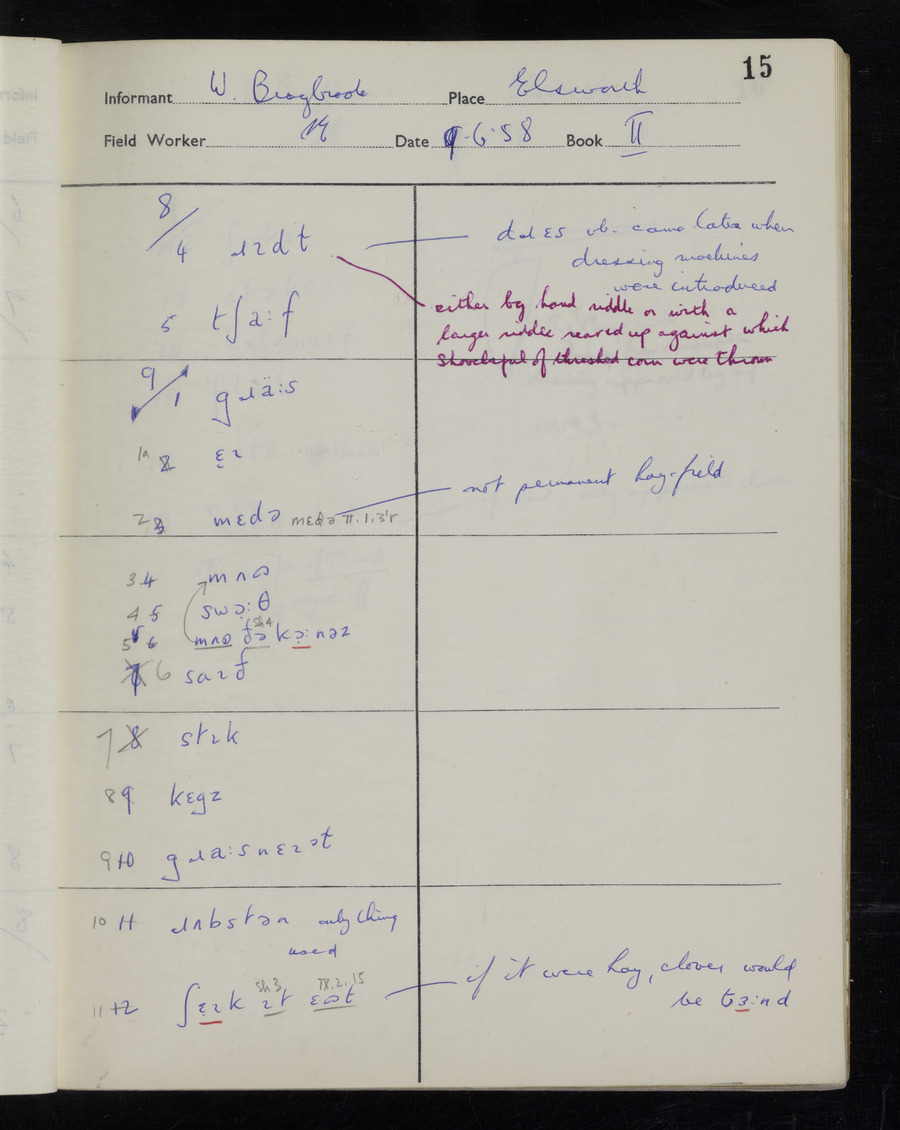 15
Informant W. Braybrook Place Elsworth
Field Worker Date 9·6·58 Book II
8/
4 ɹɪdt
dɹɛs vb. came later when
dressing machines
were introduced
either by hand riddle or with a
larger riddle reared up against which
shovelsful of threshed corn were thrown
5 tʃa:f
9/1 gɹä:s
1a 2 ɛ̣ɪ
2 3 mɛdə mɛdə II.1.3'r
not permanent hay-field
3 4 mʌʊ
4 5 swə̣:θ
5 6 mʌʊ ðə sh4 kə̣:nəz
7 6 saɪð
7 8 stɪk
8 9 kɛgz
9 10 gɹa:snɛɪət
10 11 ɹʌbstən only thing
used
11 12 ʃɛ̣ɪk ɪt sh3 ɛʊt IX.2.15
if it were hay, clover would
be tɜ:nd